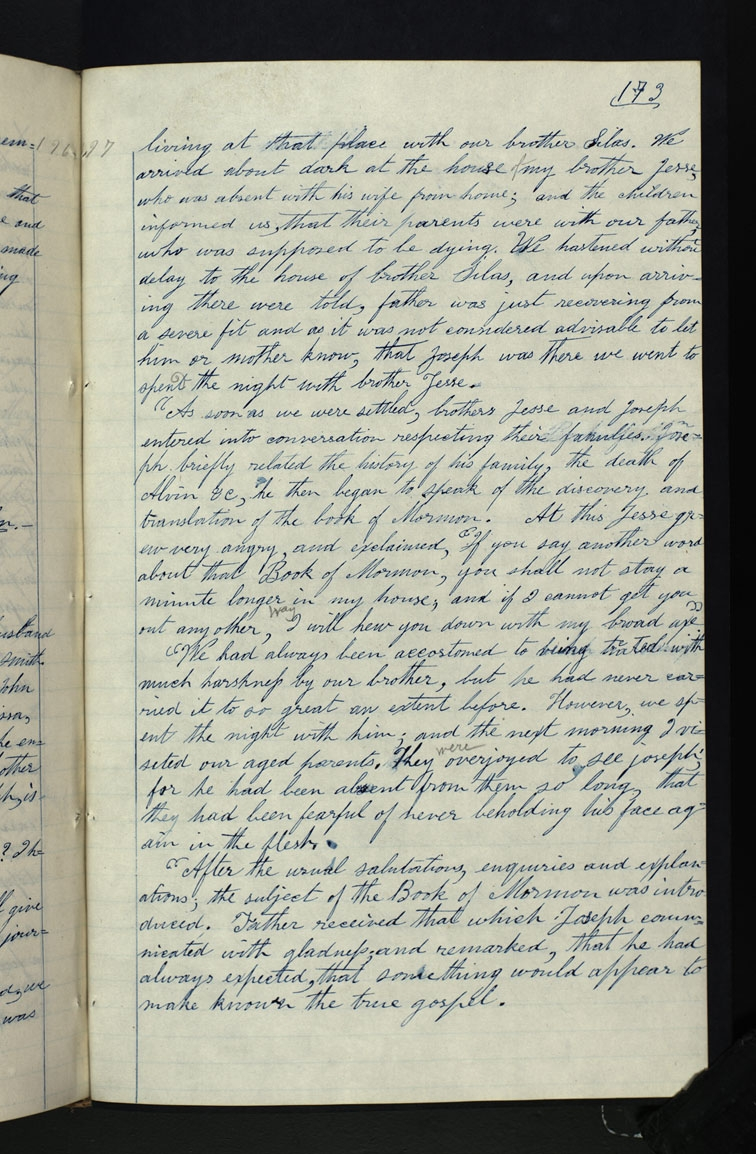 173
196-197
living at that place with our brother Silas. We
arrived about dark at the house of my brother Jesse,
who was absent with his wife from home; and the children
informed us, that their parents were with our father,
who was supposed to be dying. We hastened without
delay to the house of brother Silas, and upon arriv-
ing there were told, father was just recovering from
a severe fit and as it was not considered advisable to let
him or mother know, that Joseph was there we went to
spend the night with brother Jesse.
"As soon as we were settled, brothers Jesse and Joseph
entered into conversation respecting their families. Jose=
ph briefly related the history of his family, the death of
Alvin &c, he then began to speak of the discovery and
translation of the book of Mormon. At this Jesse gr=
ew very angry, and exclaimed, "If you say another word
about that Book of Mormon, you shall not stay a
minute longer in my house; and if I cannot get you
out any other way, I will hew you down with my broad axe"
"We had always been accostomed to being treated with
much harshness by our brother, but he had never car=
ried it to so great an extent before. However, we sp=
ent the night with him; and the next morning I vi=
seted our aged parents. They were overjoyed to see joseph;
for he had been absent from them so long, that
they had been fearful of never beholding his face ag=
ain in the flesh.
"After the usual salutations, enquiries and explan=
ations; the subject of the Book of Mormon was intro=
duced. Father received that which Joseph comm=
nicated with gladness; and remarked, that he had
always expected, that something would appear to
make known the true gospel.
that
e and
made
ing
usband
Smith
John
issa,
he en=
other
is
? Th=
give
jour=
we
was